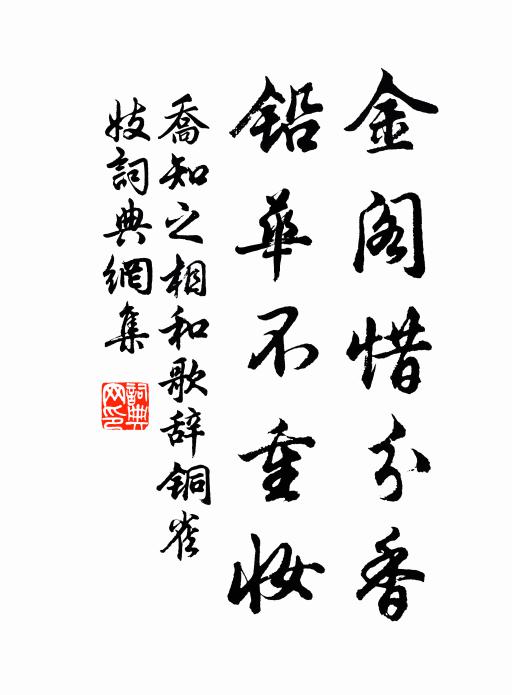 金阁惜分香
铅華不重妆
喬知之相和歌辞铜雀
妓詞典網集
詞典網印